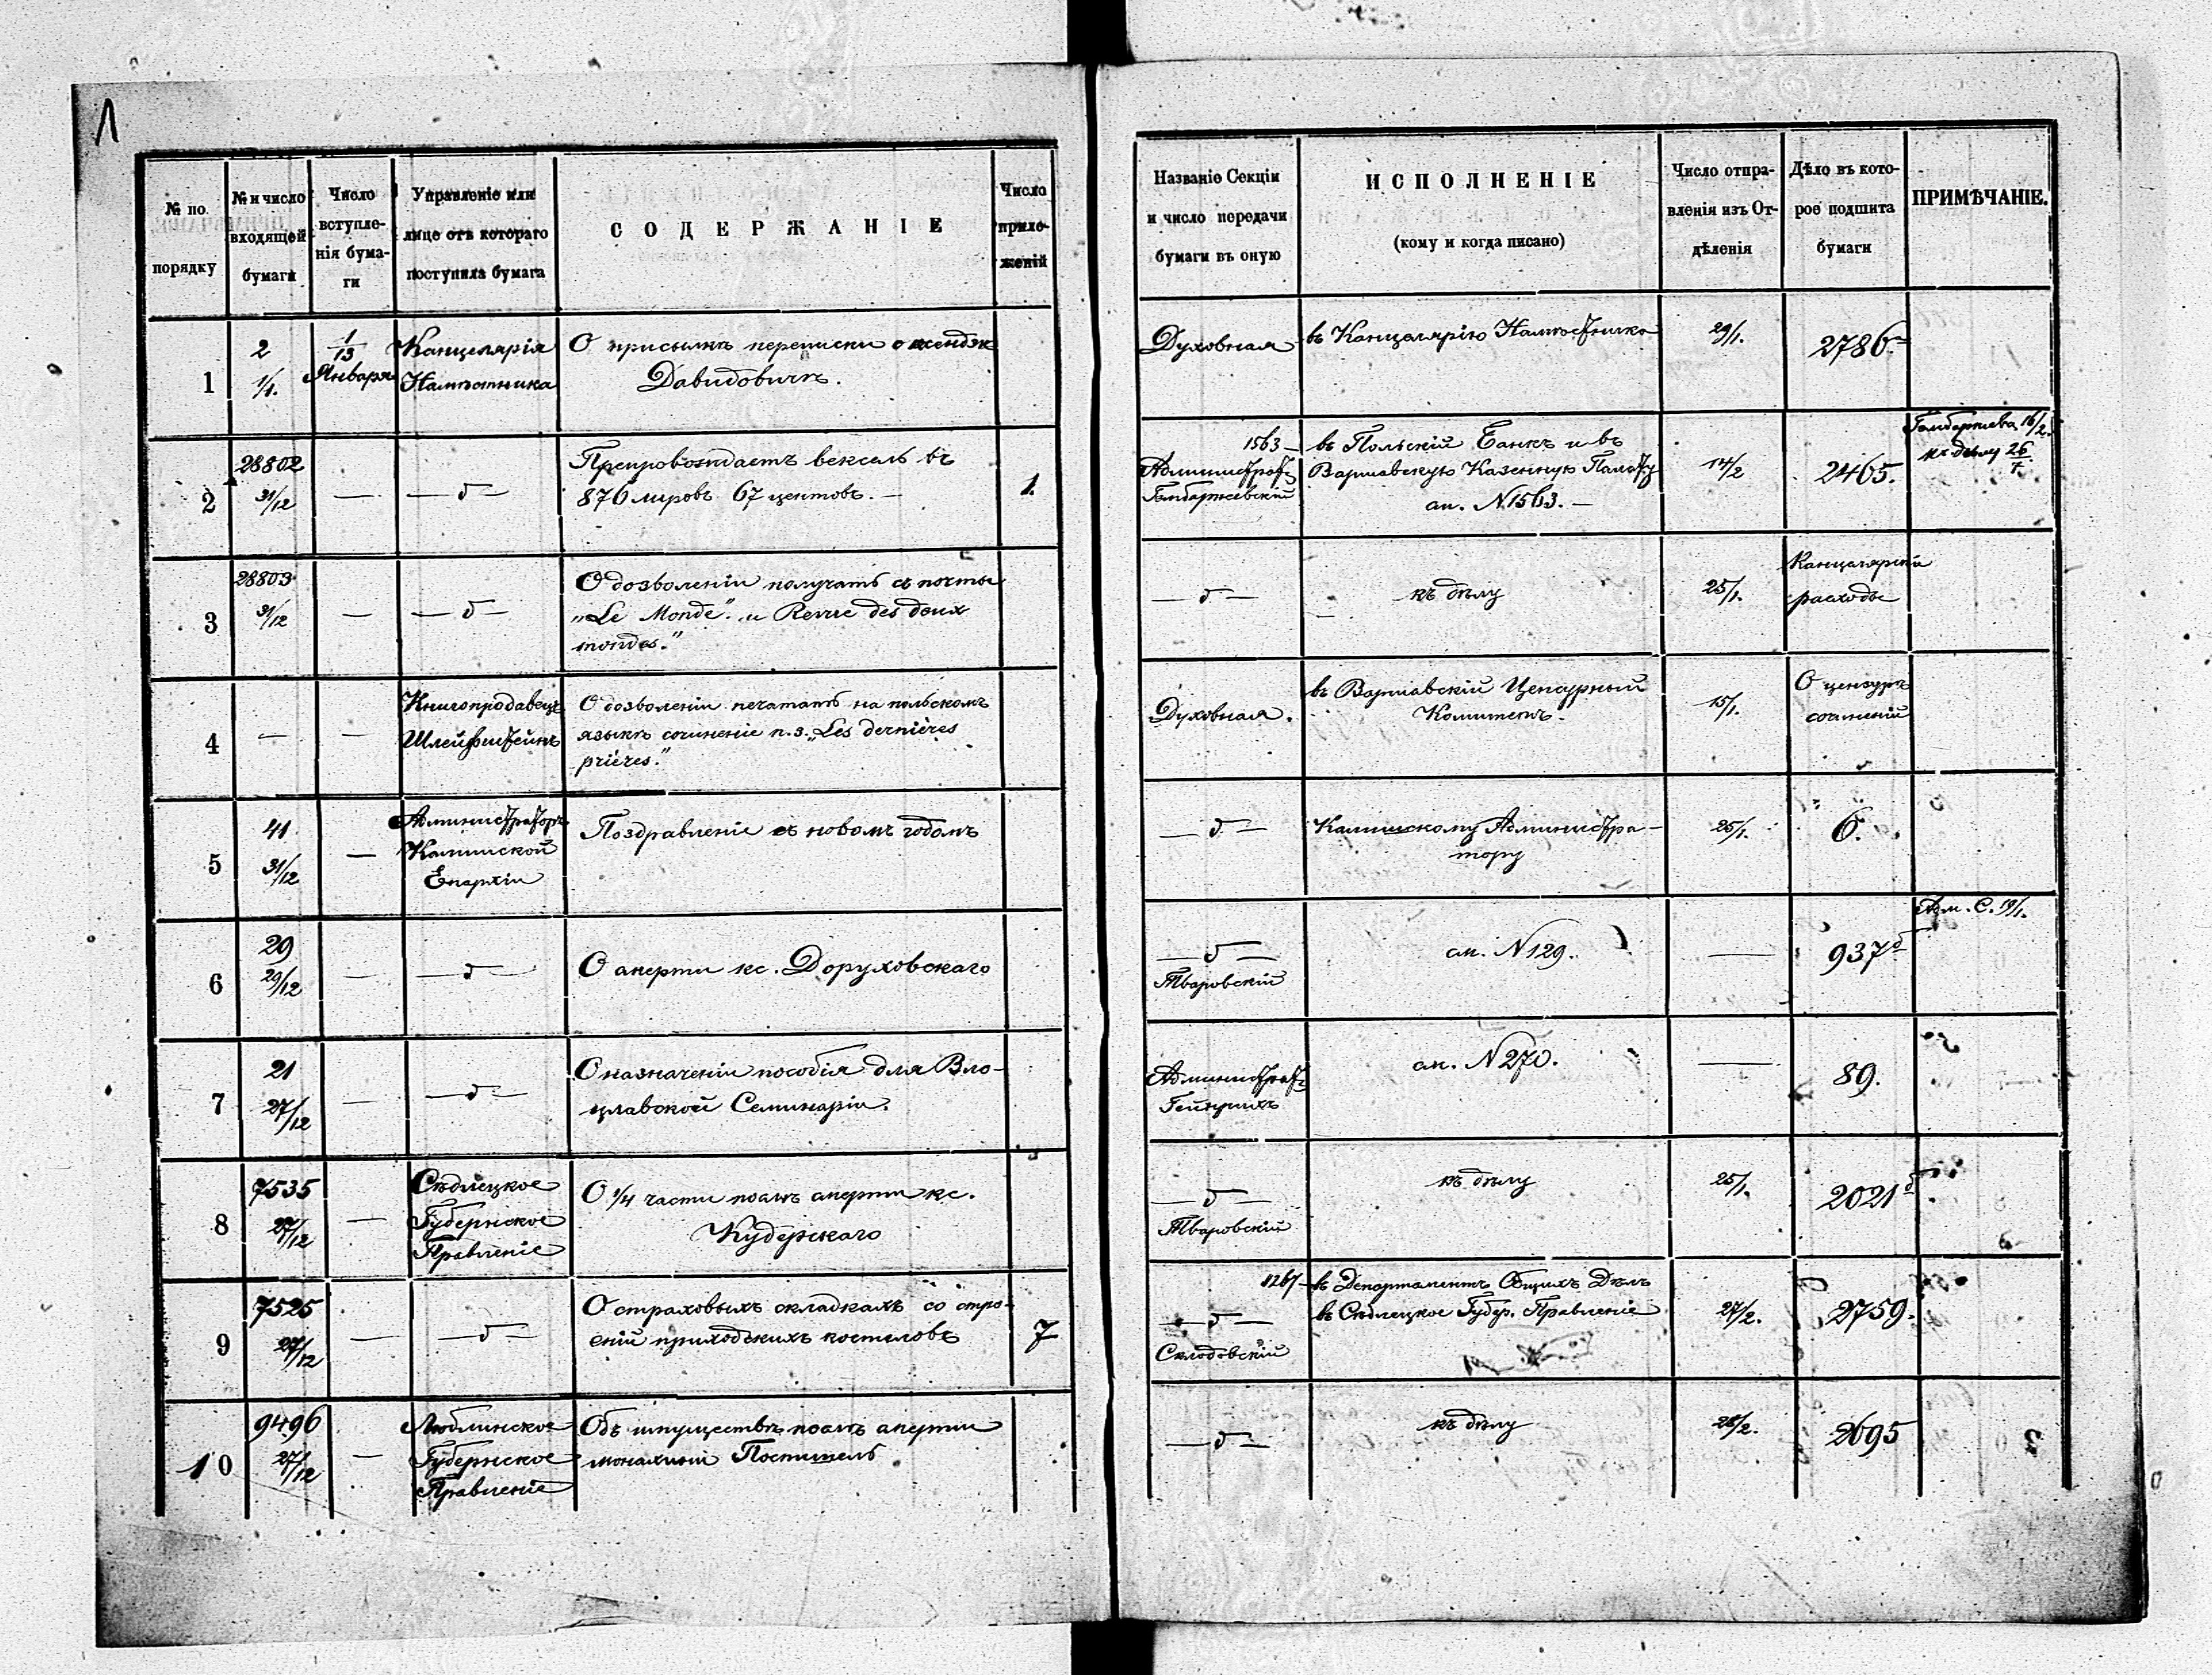 1
№ по порядку
№ и число входящей бумаги
Число вступле-
нія бума-
ги
Управленіе или
лице отъ котораго
поступила бумага
СОДЕРЖАНІЕ
Число
прило-
женій
Названіе Секціи
и число передачи
бумаги въ оную
ИСПОЛНЕНІЕ
(кому и когда писано)
Число отпра-
вленія изъ От-
дѣленія
Дѣло въ кото-
рое подшита
бумаги
ПРИМѢЧАНІЕ.
1
2
1/1.
1/13
Января
Канцелярія
Намѣстника
О присылкѣ переписки о ксендзѣ
Давидовичѣ.
Духовная
въ Канцелярію Намѣстника
29/1.
2786
2
28802
31/12
—
— д —
Препровождаетъ вексель въ
876 лировъ 67 центовъ. —
1.
1563 —
Администрат.
въ Польскій Банкъ и въ
Варшавскую Казенную Палату
см. N 1563. —
14/2
2465.
16/2.
къ дѣлу 26/
3
28803
31/12
—
— д —
О дозволеніи получать съ почты
„Le Monde" и Revue des deux
mondes."
— д —
къ дѣлу
25/1.
Канцелярскій
расходъ
4
—
—
Книгопродавецъ
О дозволеніи печатать на польскомъ
языкѣ сочиненіе п. з. „Les dernières
prières."
Духовная.
въ Варшавскій Ценсурный
Комитетъ.
15/1.
О цензурѣ
сочиненій
5
41
31/12
—
Администраторъ
Калишской
Епархіи
Поздравленіе съ новымъ годомъ
— д —
Калишскому Администра-
тору
25/1.
6.
6
29
29/12
—
— д —
О смерти кс. Доруховскаго
— д —
Тваровскій
см. N 129.
—
937 б
Адм. С. 19/1.
7
21
27/12
—
— д —
О назначеніи пособія для Вло-
цлавской Семинаріи.
Администрат.
Гейнрихъ
см. N 270.
—
89.
8
7535
27/12
—
Сѣдлецкое
Губернское
Правленіе
О 1/4 части послѣ смерти кс.
Кудерскаго
— д —
Тваровскій
къ дѣлу
25/1.
2021 б
9
7525
27/12
—
— д —
О страховыхъ складкахъ со стро-
еній приходскихъ костеловъ
7
— д —
Склодовскій
въ Департаментъ Общихъ Дѣлъ
въ Сѣдлецкое Губер. Правленіе
27/2.
2759.
10
9496
27/12
—
Люблинское
Губернское
Правленіе
Объ имуществѣ послѣ смерти
монахини
— д —
къ дѣлу
28/2.
2695